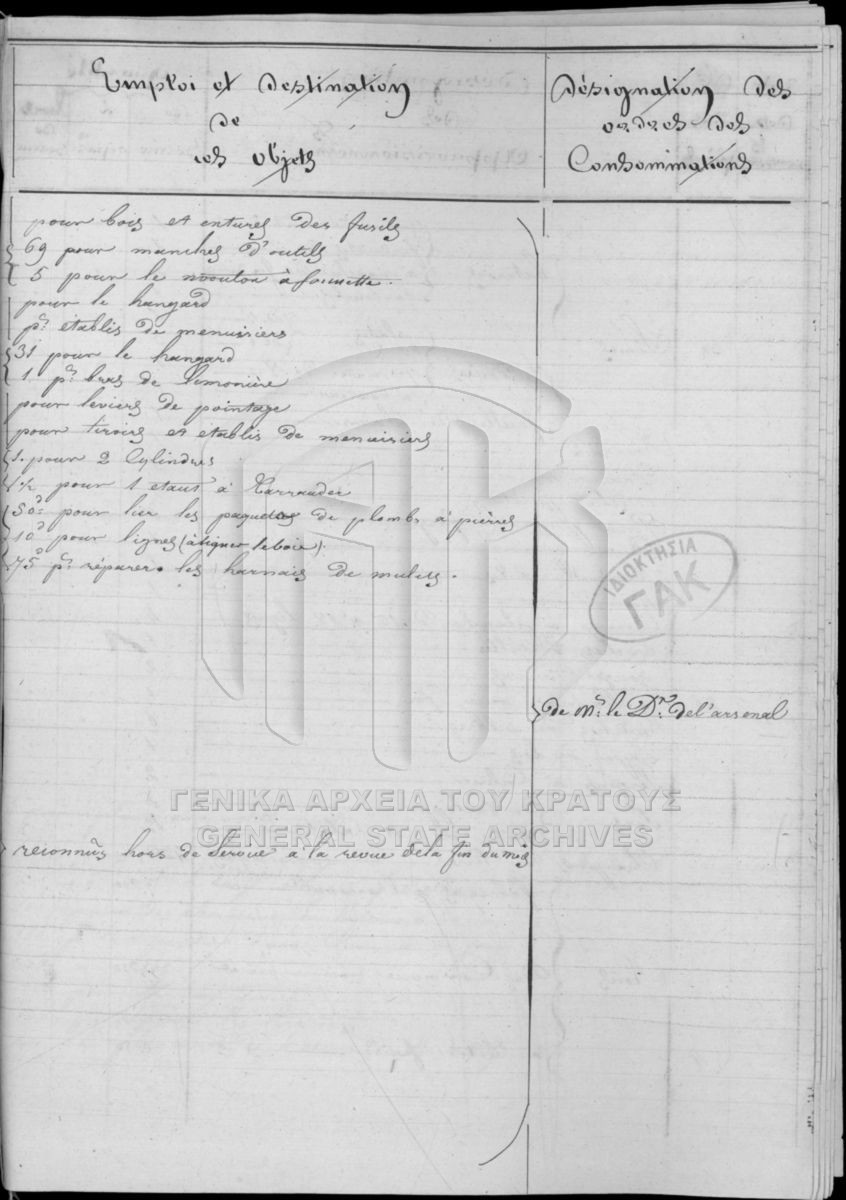 Emploi et destination
de
ces objets
désignation des
ordres des
Consommations
pour bois et entures des fusils
69 pour manches d'outils
5 pour le mouton à sonnette.
pour le hangard
pr. établis de menuisiers
31 pour le hangard
1 pr. bras de limonière
pour leviers de pointage
pour tiroirs et etablis de menuisiers
1. pour 2 Cylindres
1/2 pour 1 etaut à Tarrauder
50d pour lier les paquets de plomb à pierres
10d pour lignes (à ligner le bois).
75d pr. réparer les harnais de mulets.
de Mr. le Dr. de l'arsenal
reconnus hors de service à la revue de la fin du mois
ΙΔΙΟΚΤΗΣΙΑ
ΓΑΚ
ΓΕΝΙΚΑ ΑΡΧΕΙΑ ΤΟΥ ΚΡΑΤΟΥΣ
GENERAL STATE ARCHIVES